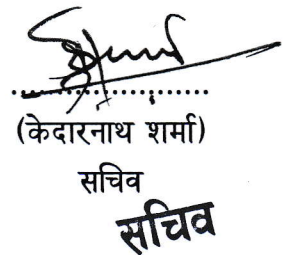 (केदारनाथ शर्मा)
सचिव
सचिव